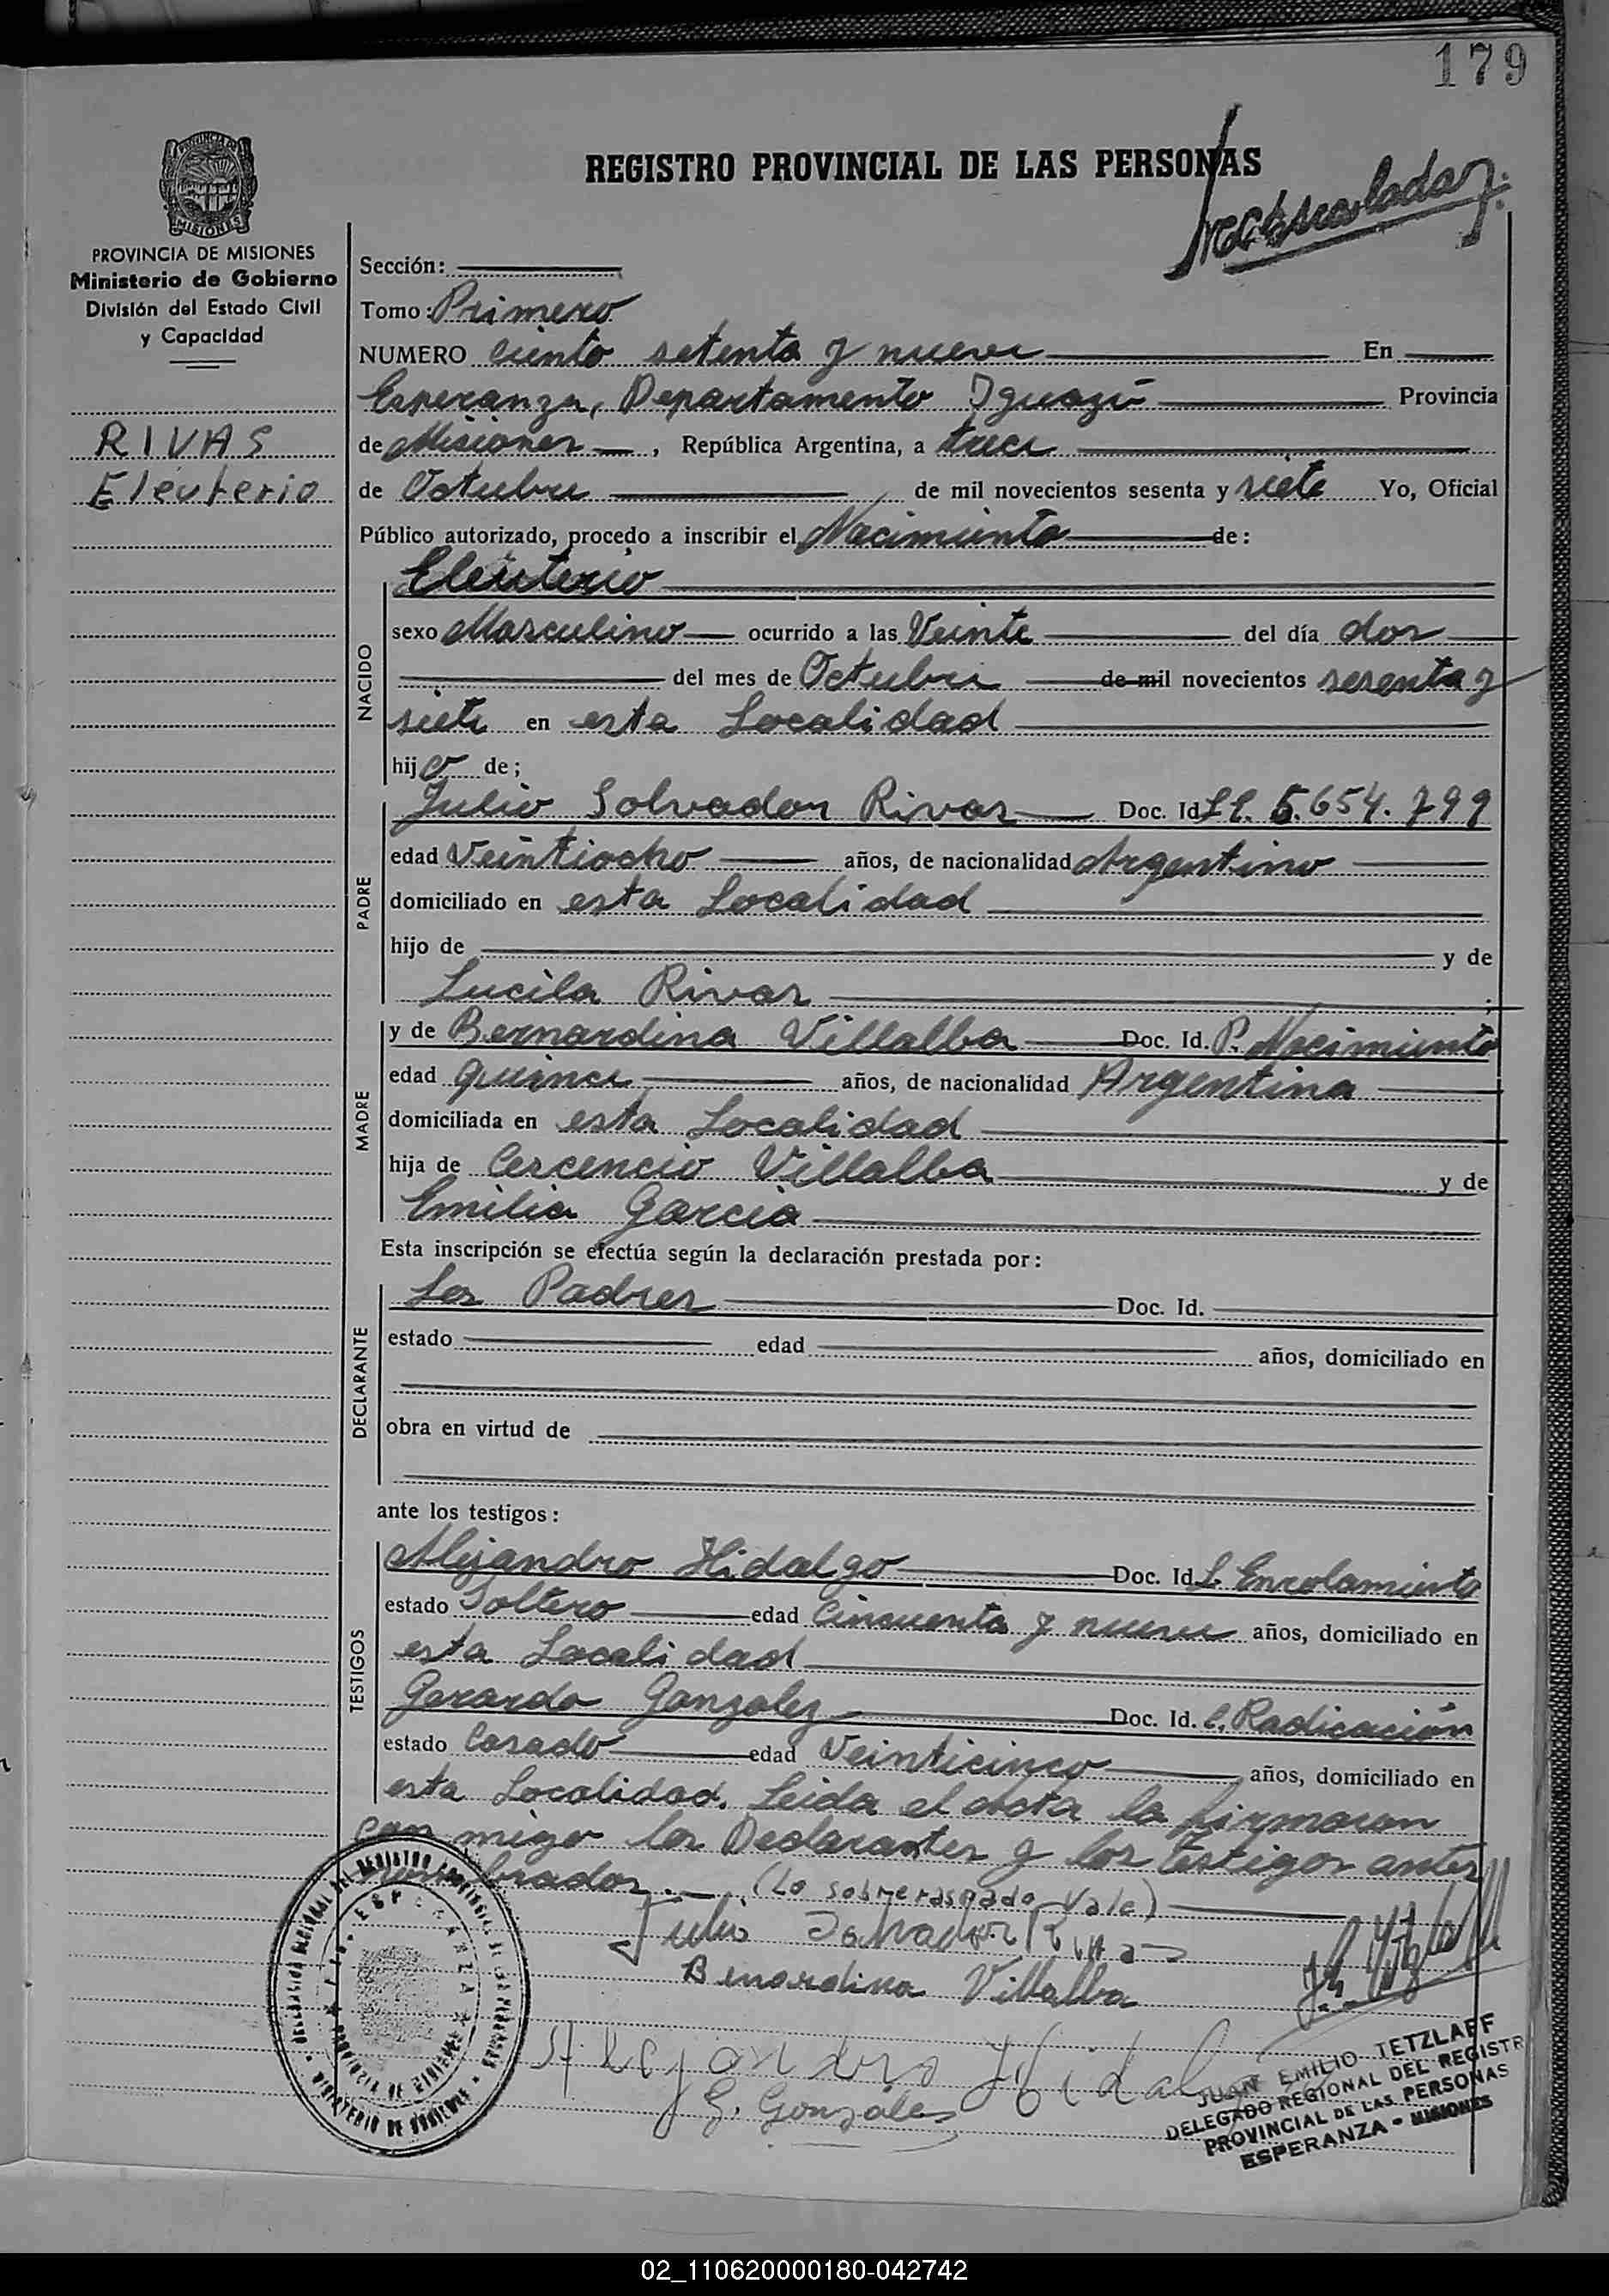 179
REGISTRO PROVINCIAL DE LAS PERSONAS
PROVINCIA DE MISIONES
Ministerio de Gobierno
División del Estado Civil
y Capacidad
RIVAS
Eleuterio
Sección:
Tomo: Primero
NUMERO ciento setenta y nueve En
Esperanza, Departamento Iguazú Provincia
de Misiones, República Argentina, a trece
de Octubre de mil novecientos sesenta y siete Yo, Oficial
Público autorizado, procedo a inscribir el Nacimiento de:
Eleuterio
NACIDO
sexo Masculino ocurrido a las Veinte del día dos
del mes de Octubre de mil novecientos sesenta y
siete en esta Localidad
hijo de;
PADRE
Julio Salvador Rivas Doc. Id L E. 5.654.799
edad Veintiocho años, de nacionalidad Argentino
domiciliado en esta Localidad
hijo de y de
Lucila Rivas ;
MADRE
y de Bernardina Villalba Doc. Id. P. Nacimiento
edad quince años, de nacionalidad Argentina
domiciliada en esta Localidad
hija de Cercencio Villalba y de
Emilia Garcia
Esta inscripción se efectúa según la declaración prestada por:
DECLARANTE
Los Padres Doc. Id.
estado edad años, domiciliado en
obra en virtud de
ante los testigos:
TESTIGOS
Alejandro Hidalgo Doc. Id L. Enrolamiento
estado Soltero edad Cincuenta y nueve años, domiciliado en
esta Localidad
Gerardo Gonzalez Doc. Id. C. Radicación
estado Casado edad Veinticinco años, domiciliado en
esta Localidad. Leida el acta la firmaron
con migo los Declarantes y los testigos antes
nombrados.- (Lo sobreraspado Vale)
Julio Salvador Rivas
Benardina Villalba
Alejandro Hidalgo
G. Gonzáles
JUAN EMILIO TETZLAFF
DELEGADO REGIONAL DEL REGISTR
PROVINCIAL DE LAS PERSONAS
ESPERANZA - MISIONES
02_110620000180-042742